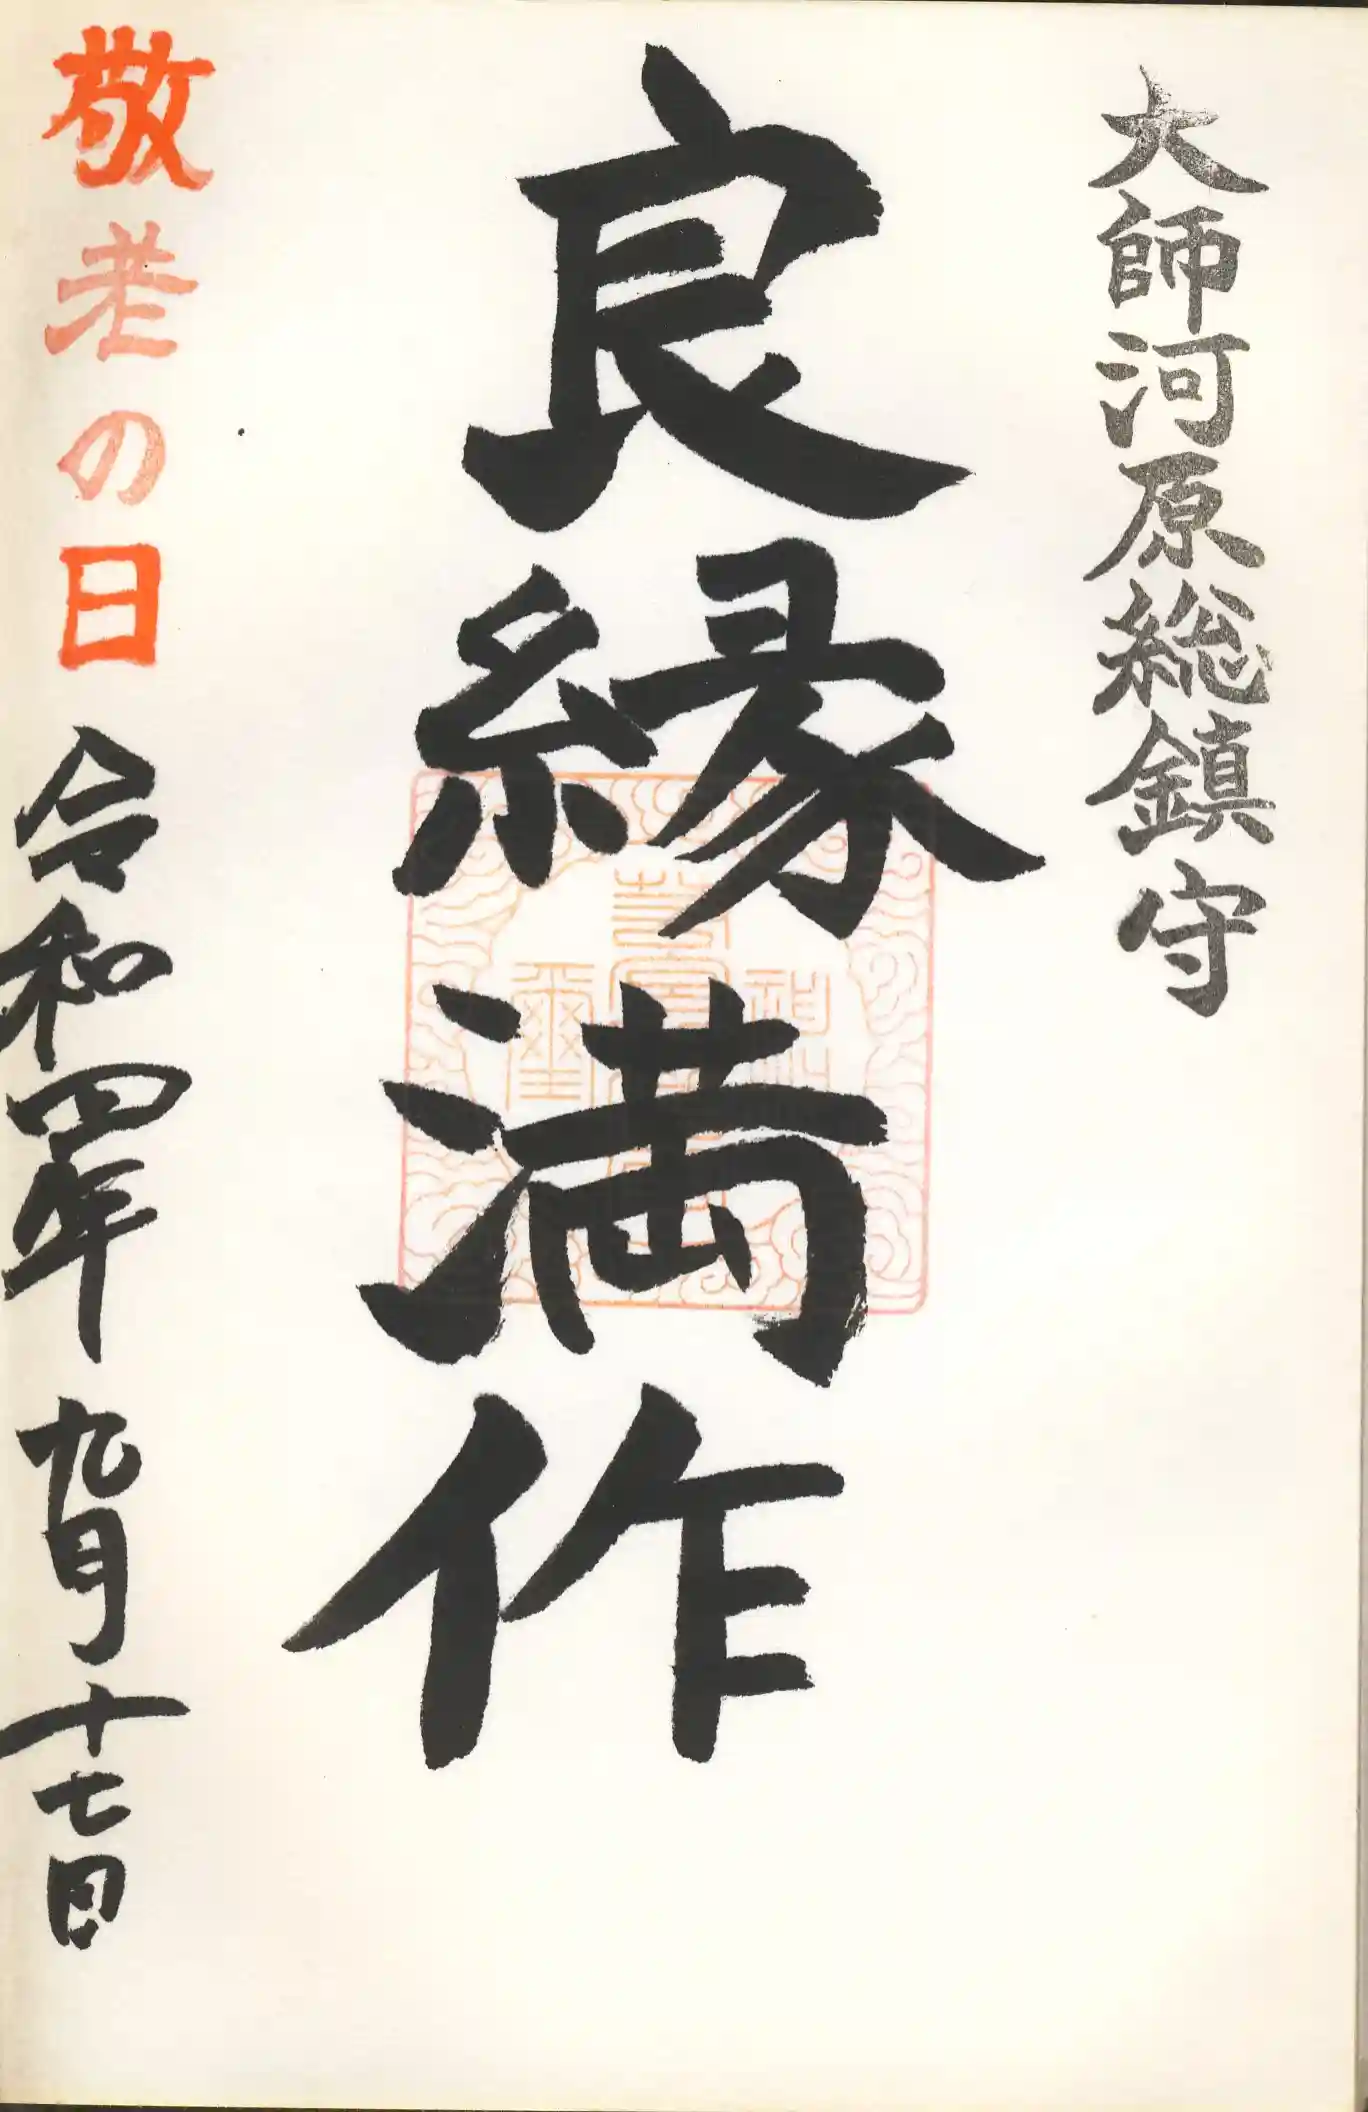 大師河原総鎮守
良縁満作
敬老の日 令和四年 九月十七日